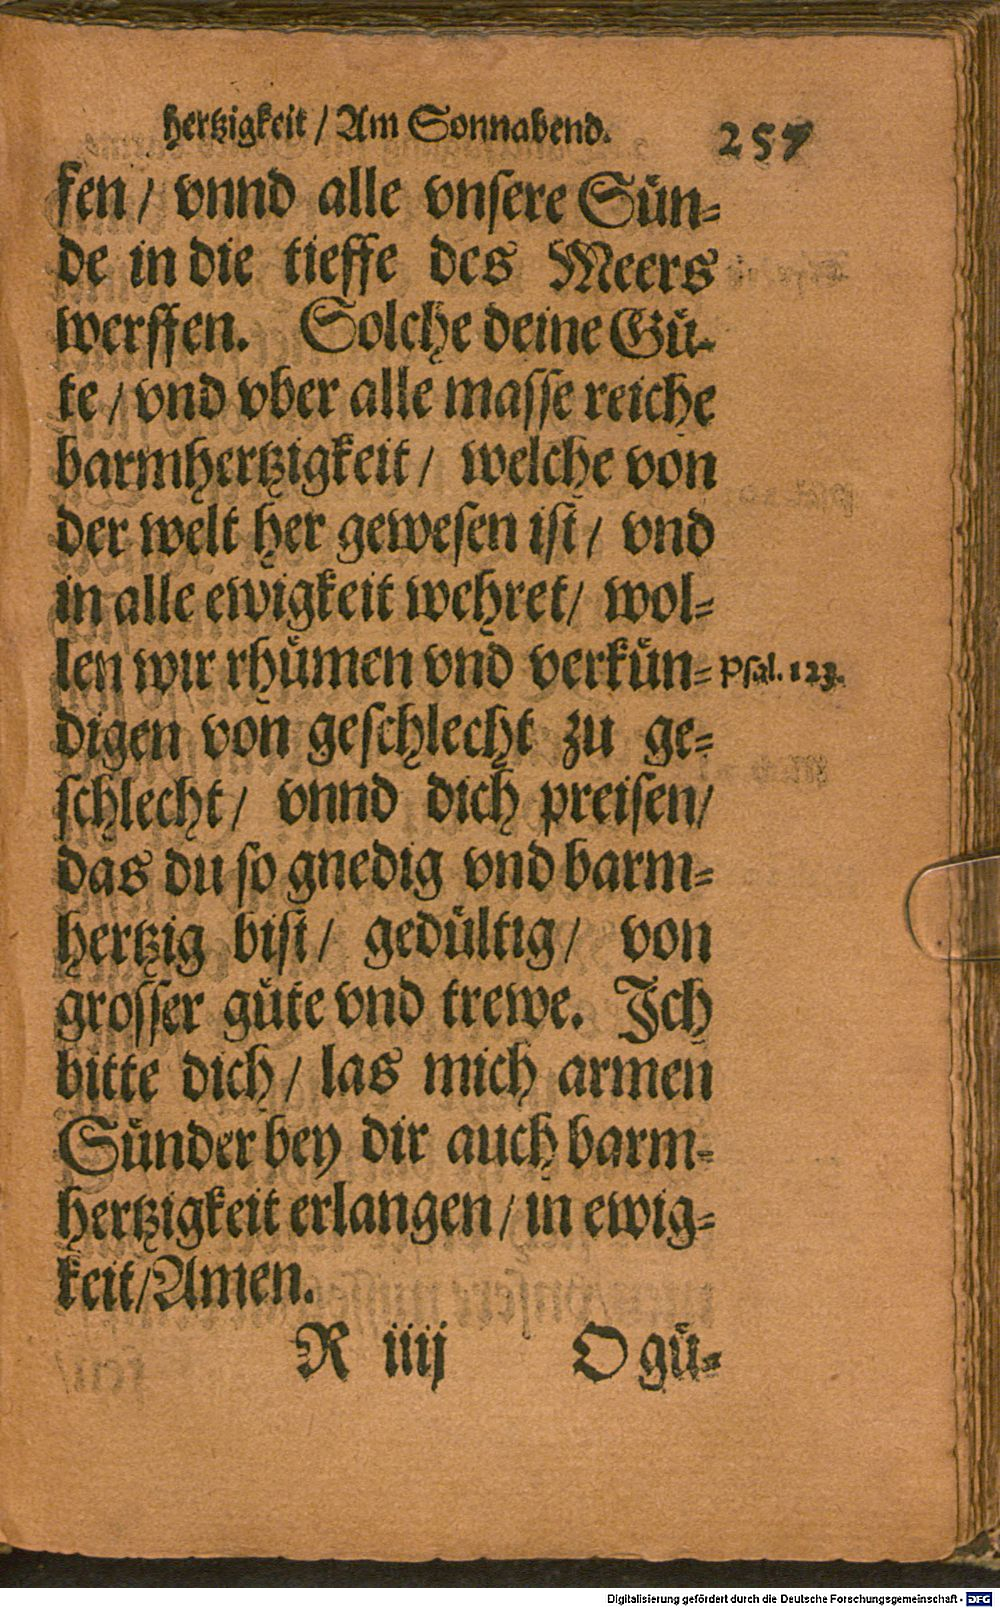 hertzigkeit / Am Sonnabend. 257
fen / vnnd alle vnsere Sün-
de in die tieffe des Meers
werffen. Solche deine Gü-
te / vnd vber alle masse reiche
barmhertzigkeit / welche von
der welt her gewesen ist / vnd
in alle ewigkeit wehret / wol-
len wir rhümen vnd verkün-
Psal. 123.
digen von geschlecht zu ge-
schlecht / vnnd dich preisen /
das du so gnedig vnd barm-
hertzig bist / gedültig / von
grosser güte vnd trewe. Ich
bitte dich / las mich armen
Sünder bey dir auch barm-
hertzigkeit erlangen / in ewig-
keit / Amen.
R iiij O gü-
Digitalisierung gefördert durch die Deutsche Forschungsgemeinschaft - DFG